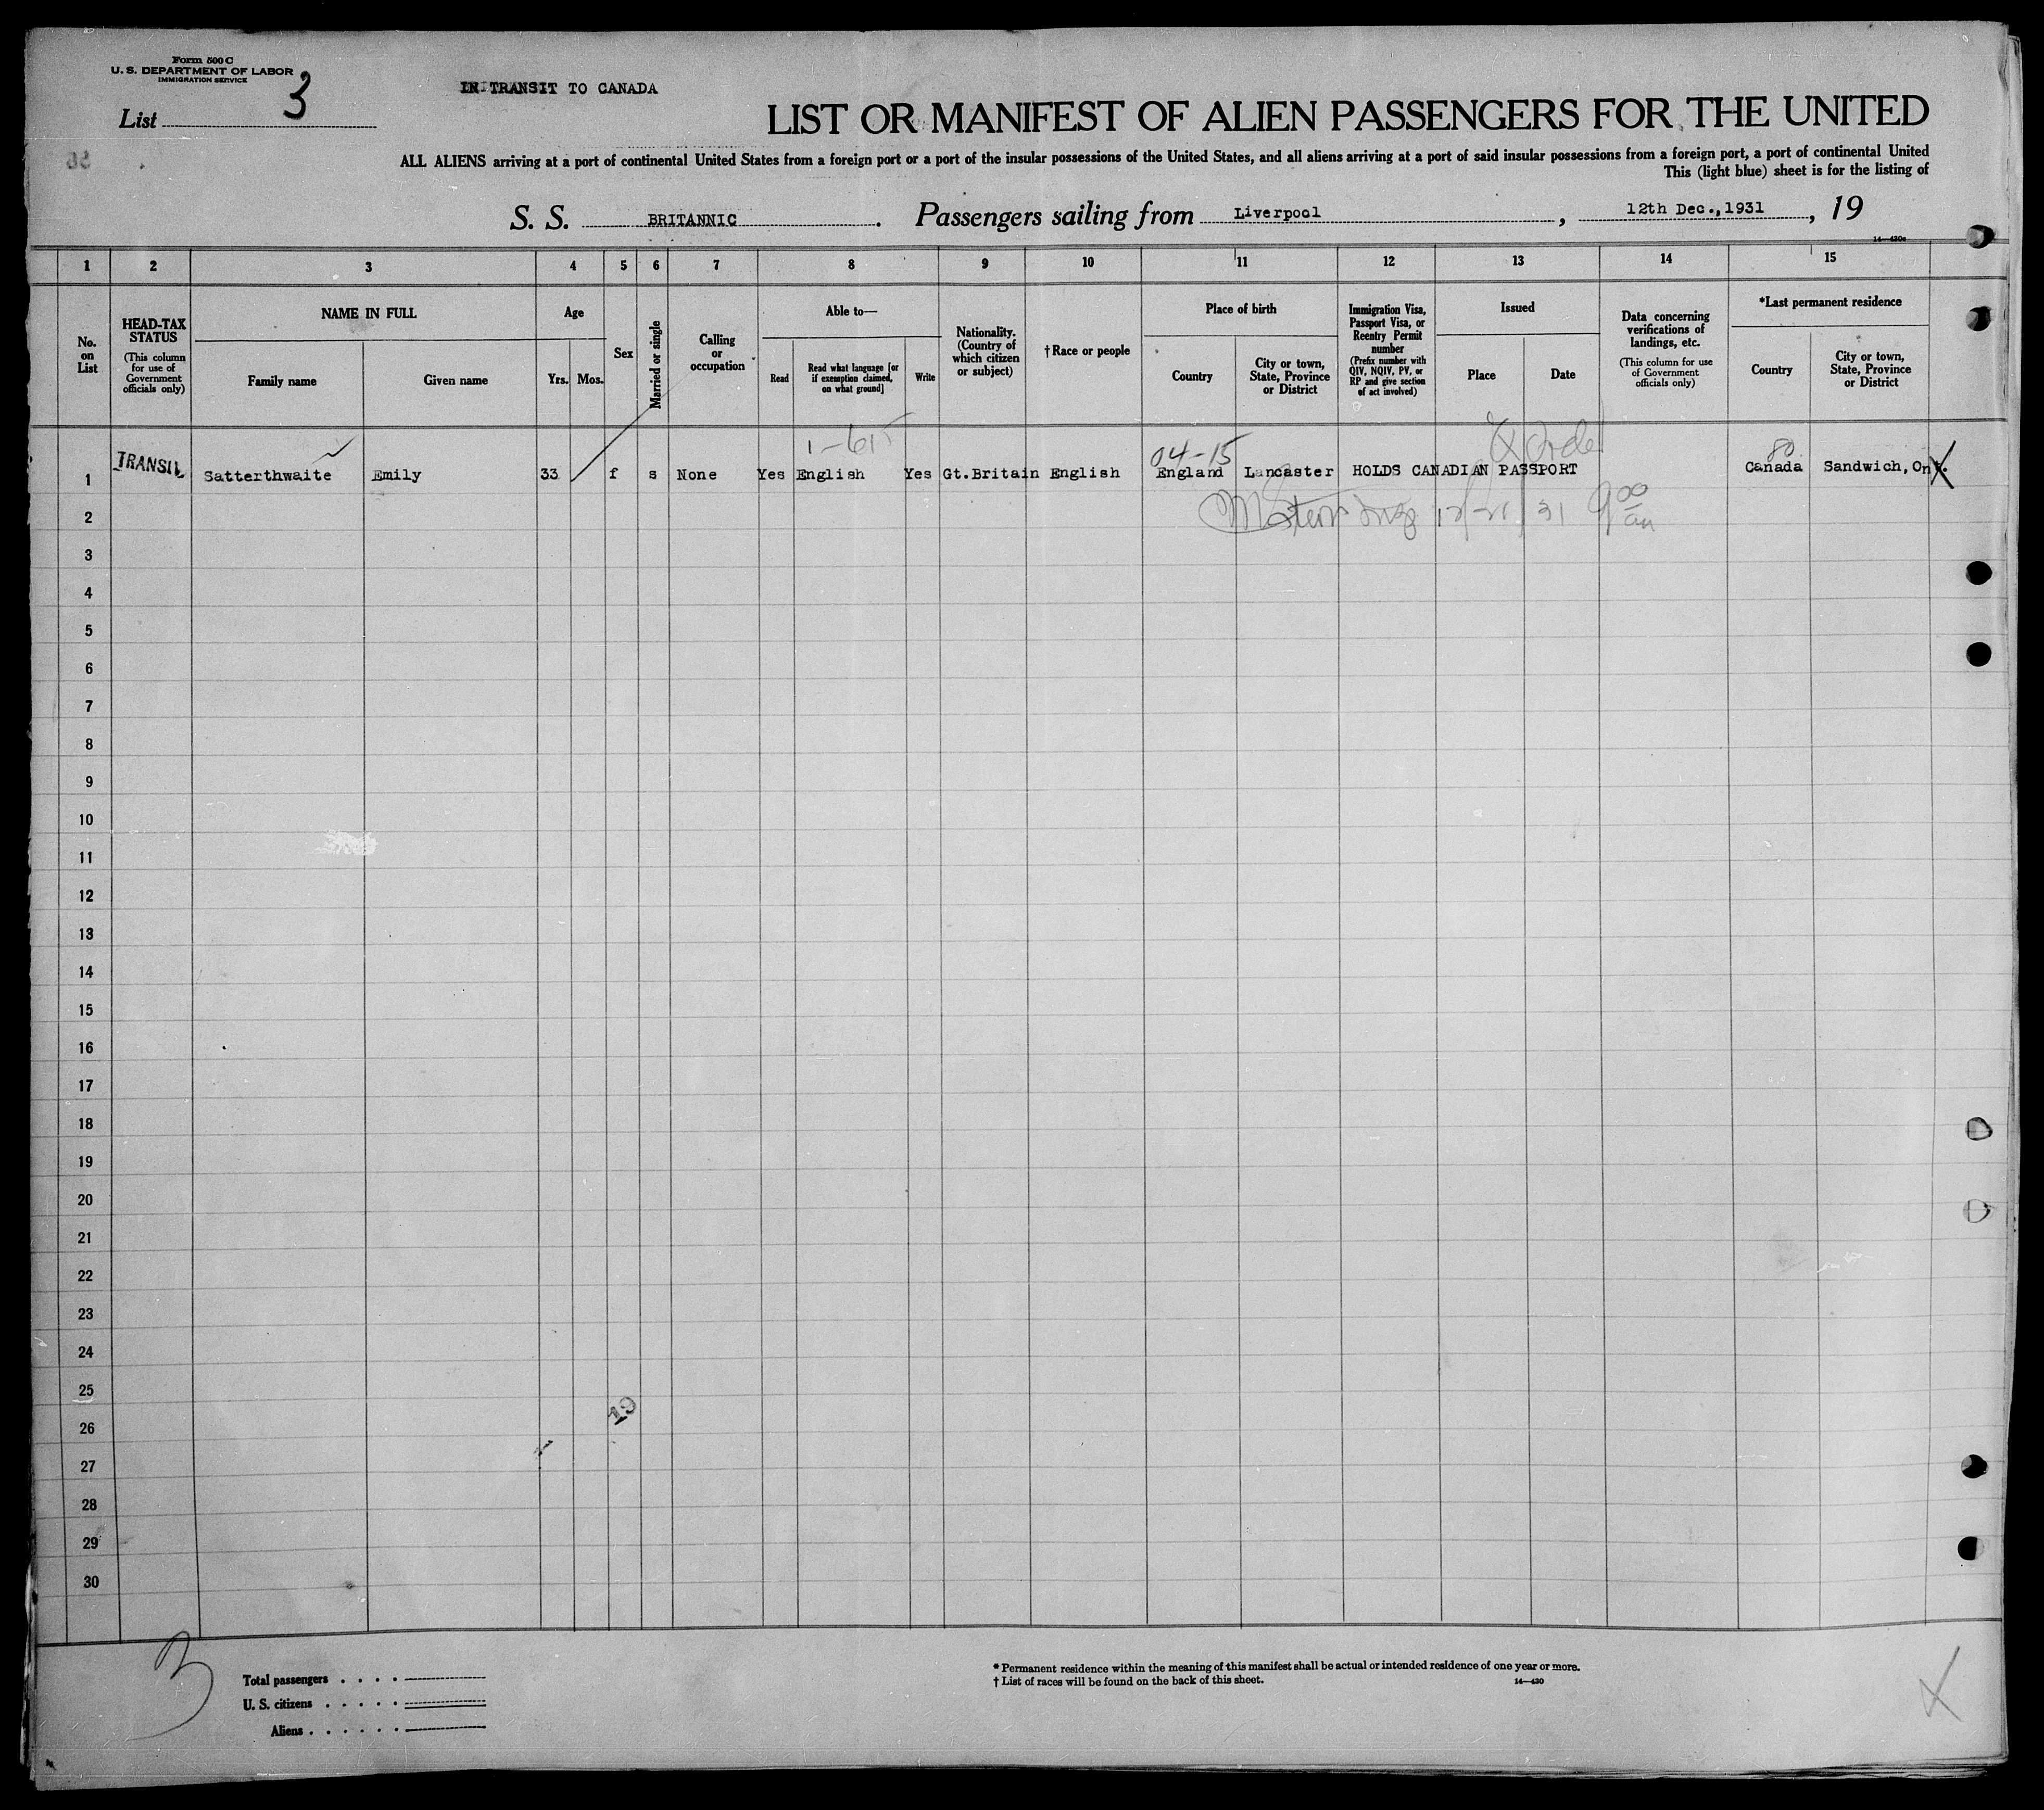 Form 500 C
U. S. DEPARTMENT OF LABOR
IMMIGRATION SERVICE
List 3
IN TRANSIT TO CANADA
LIST OR MANIFEST OF ALIEN PASSENGERS FOR THE UNITED
ALL ALIENS arriving at a port of continental United States from a foreign port or a port of the insular possessions of the United States, and all aliens arriving at a port of said insular possessions from a foreign port, a port of continental United
This (light blue) sheet is for the listing of
S. S. BRITANNIC. Passengers sailing from Liverpool, 12th Dec.,1931, 19
14—430c
1 2 3 4 5 6 7 8 9 10 11 12 13 14 15
No. on List
HEAD-TAX STATUS (This column for use of Government officials only)
NAME IN FULL
Family name Given name
Age
Yrs. Mos.
Sex
Married or single
Calling or occupation
Able to—
Read
Read what language [or if exemption claimed, on what ground]
Write
Nationality. (Country of which citizen or subject)
†Race or people
Place of birth
Country
City or town, State, Province or District
Immigration Visa, Passport Visa, or Reentry Permit number (Prefix number with QIV, NQIV, PV, or RP and give section of act involved)
Issued
Place Date
Data concerning verifications of landings, etc. (This column for use of Government officials only)
*Last permanent residence
Country
City or town, State, Province or District
1-615
04-15
80
1 TRANSIT Satterthwaite Emily 33 f s None Yes English Yes Gt.Britain English England Lancaster HOLDS CANADIAN PASSPORT Canada Sandwich, Ont. X
2 12/21/31 9 00 am
3
4
5
6
7
8
9
10
11
12
13
14
15
16
17
18
19
20
21
22
23
24
25
19
26
27
28
29
30
3
Total passengers . . . .
U. S. citizens . . . . .
Aliens . . . . . .
* Permanent residence within the meaning of this manifest shall be actual or intended residence of one year or more.
† List of races will be found on the back of this sheet.
14—430
X